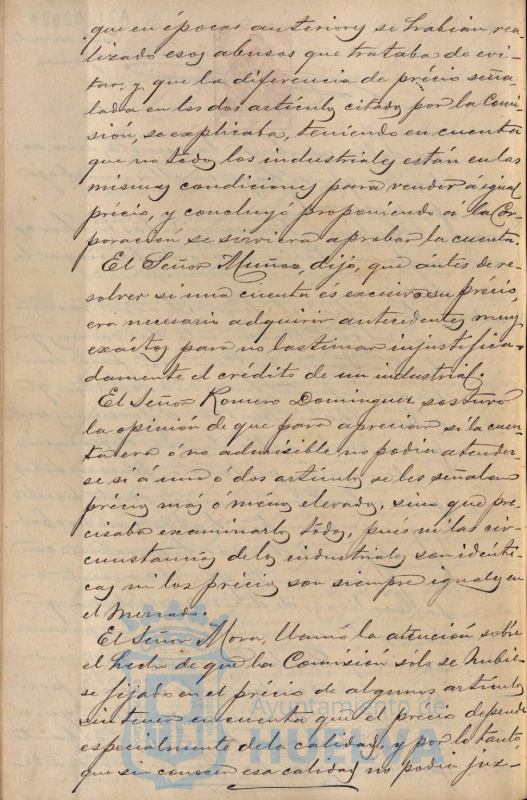 que en épocas anteriores se habian rea-
lizado esos abusos que trataba de evi-
tar, y que la diferencia de précio seña-
lada en los dos artículos citados por la Comi-
sión, se explicaba, teniendo en cuenta
que no todos los industriales están en las
mismas condiciones para vender á igual
précio, y concluyó proponiendo á la Cor-
poración se sirviera aprobar la cuenta.
El Señor Muñoz, dijo, que ántes de re-
solver si una cuenta és excesiva en su précio,
era necesario adquirir antecedentes muy
exáctos para no lastimar injustifica-
damente el crédito de un industrial.
El Señor Romero Dominguez sostuvo
la opinión de que para apreciar si la cuen-
ta era ó no admisible no podia atender-
se si á uno ó dos artículos se les señalaba
précios más ó ménos elevados, sino que pre-
cisaba examinarlos todos, pués ni las cir-
cunstancias de los industriales son idénti-
cas ni los précios son siempre iguales en
el mercado.
El Señor Mora, llamó la atención sobre
el hecho de que la Comisión sólo se hubie-
se fijado en el précio de algunos artículos
sin tener en cuenta que el précio depende
especialmente de la calidad, y por lo tanto,
que sin conocer esa calidad no podia juz-
Ayuntamiento de
HUELVA